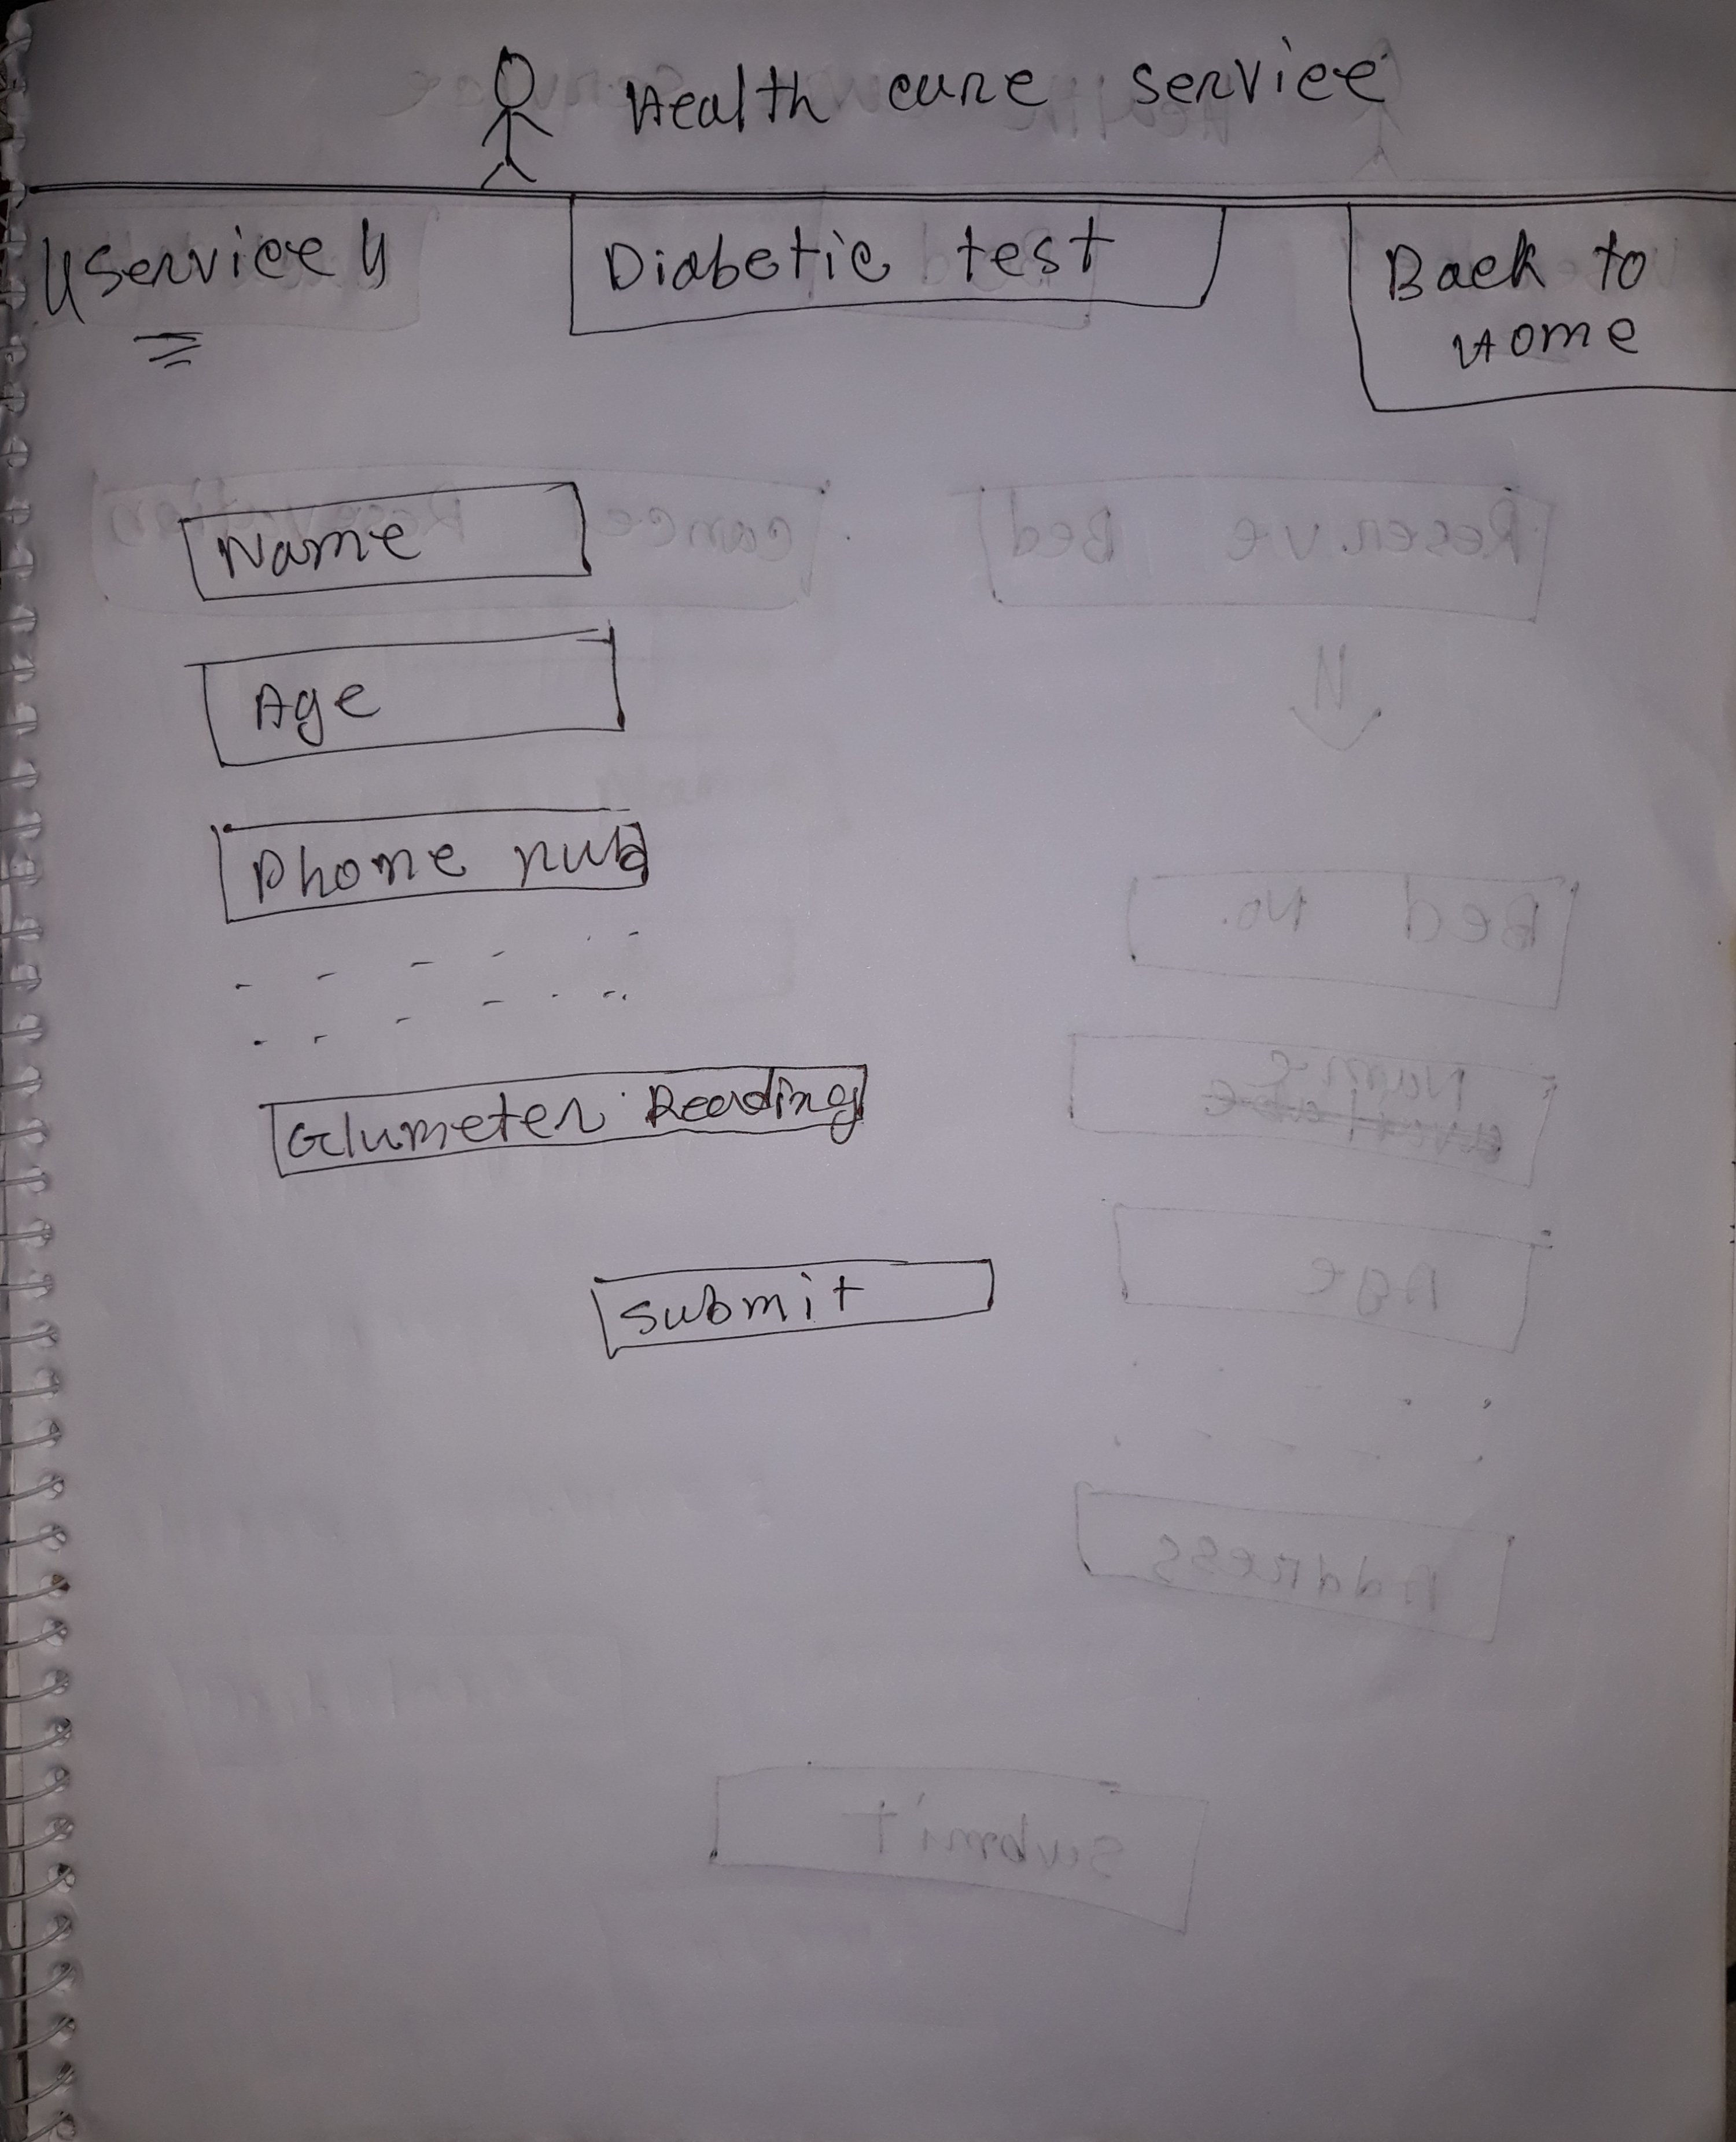 Health care service
"Service"
Diabetic test
Back to
Home
Name
Age
Phone nub
Glumeter Reading
Submit